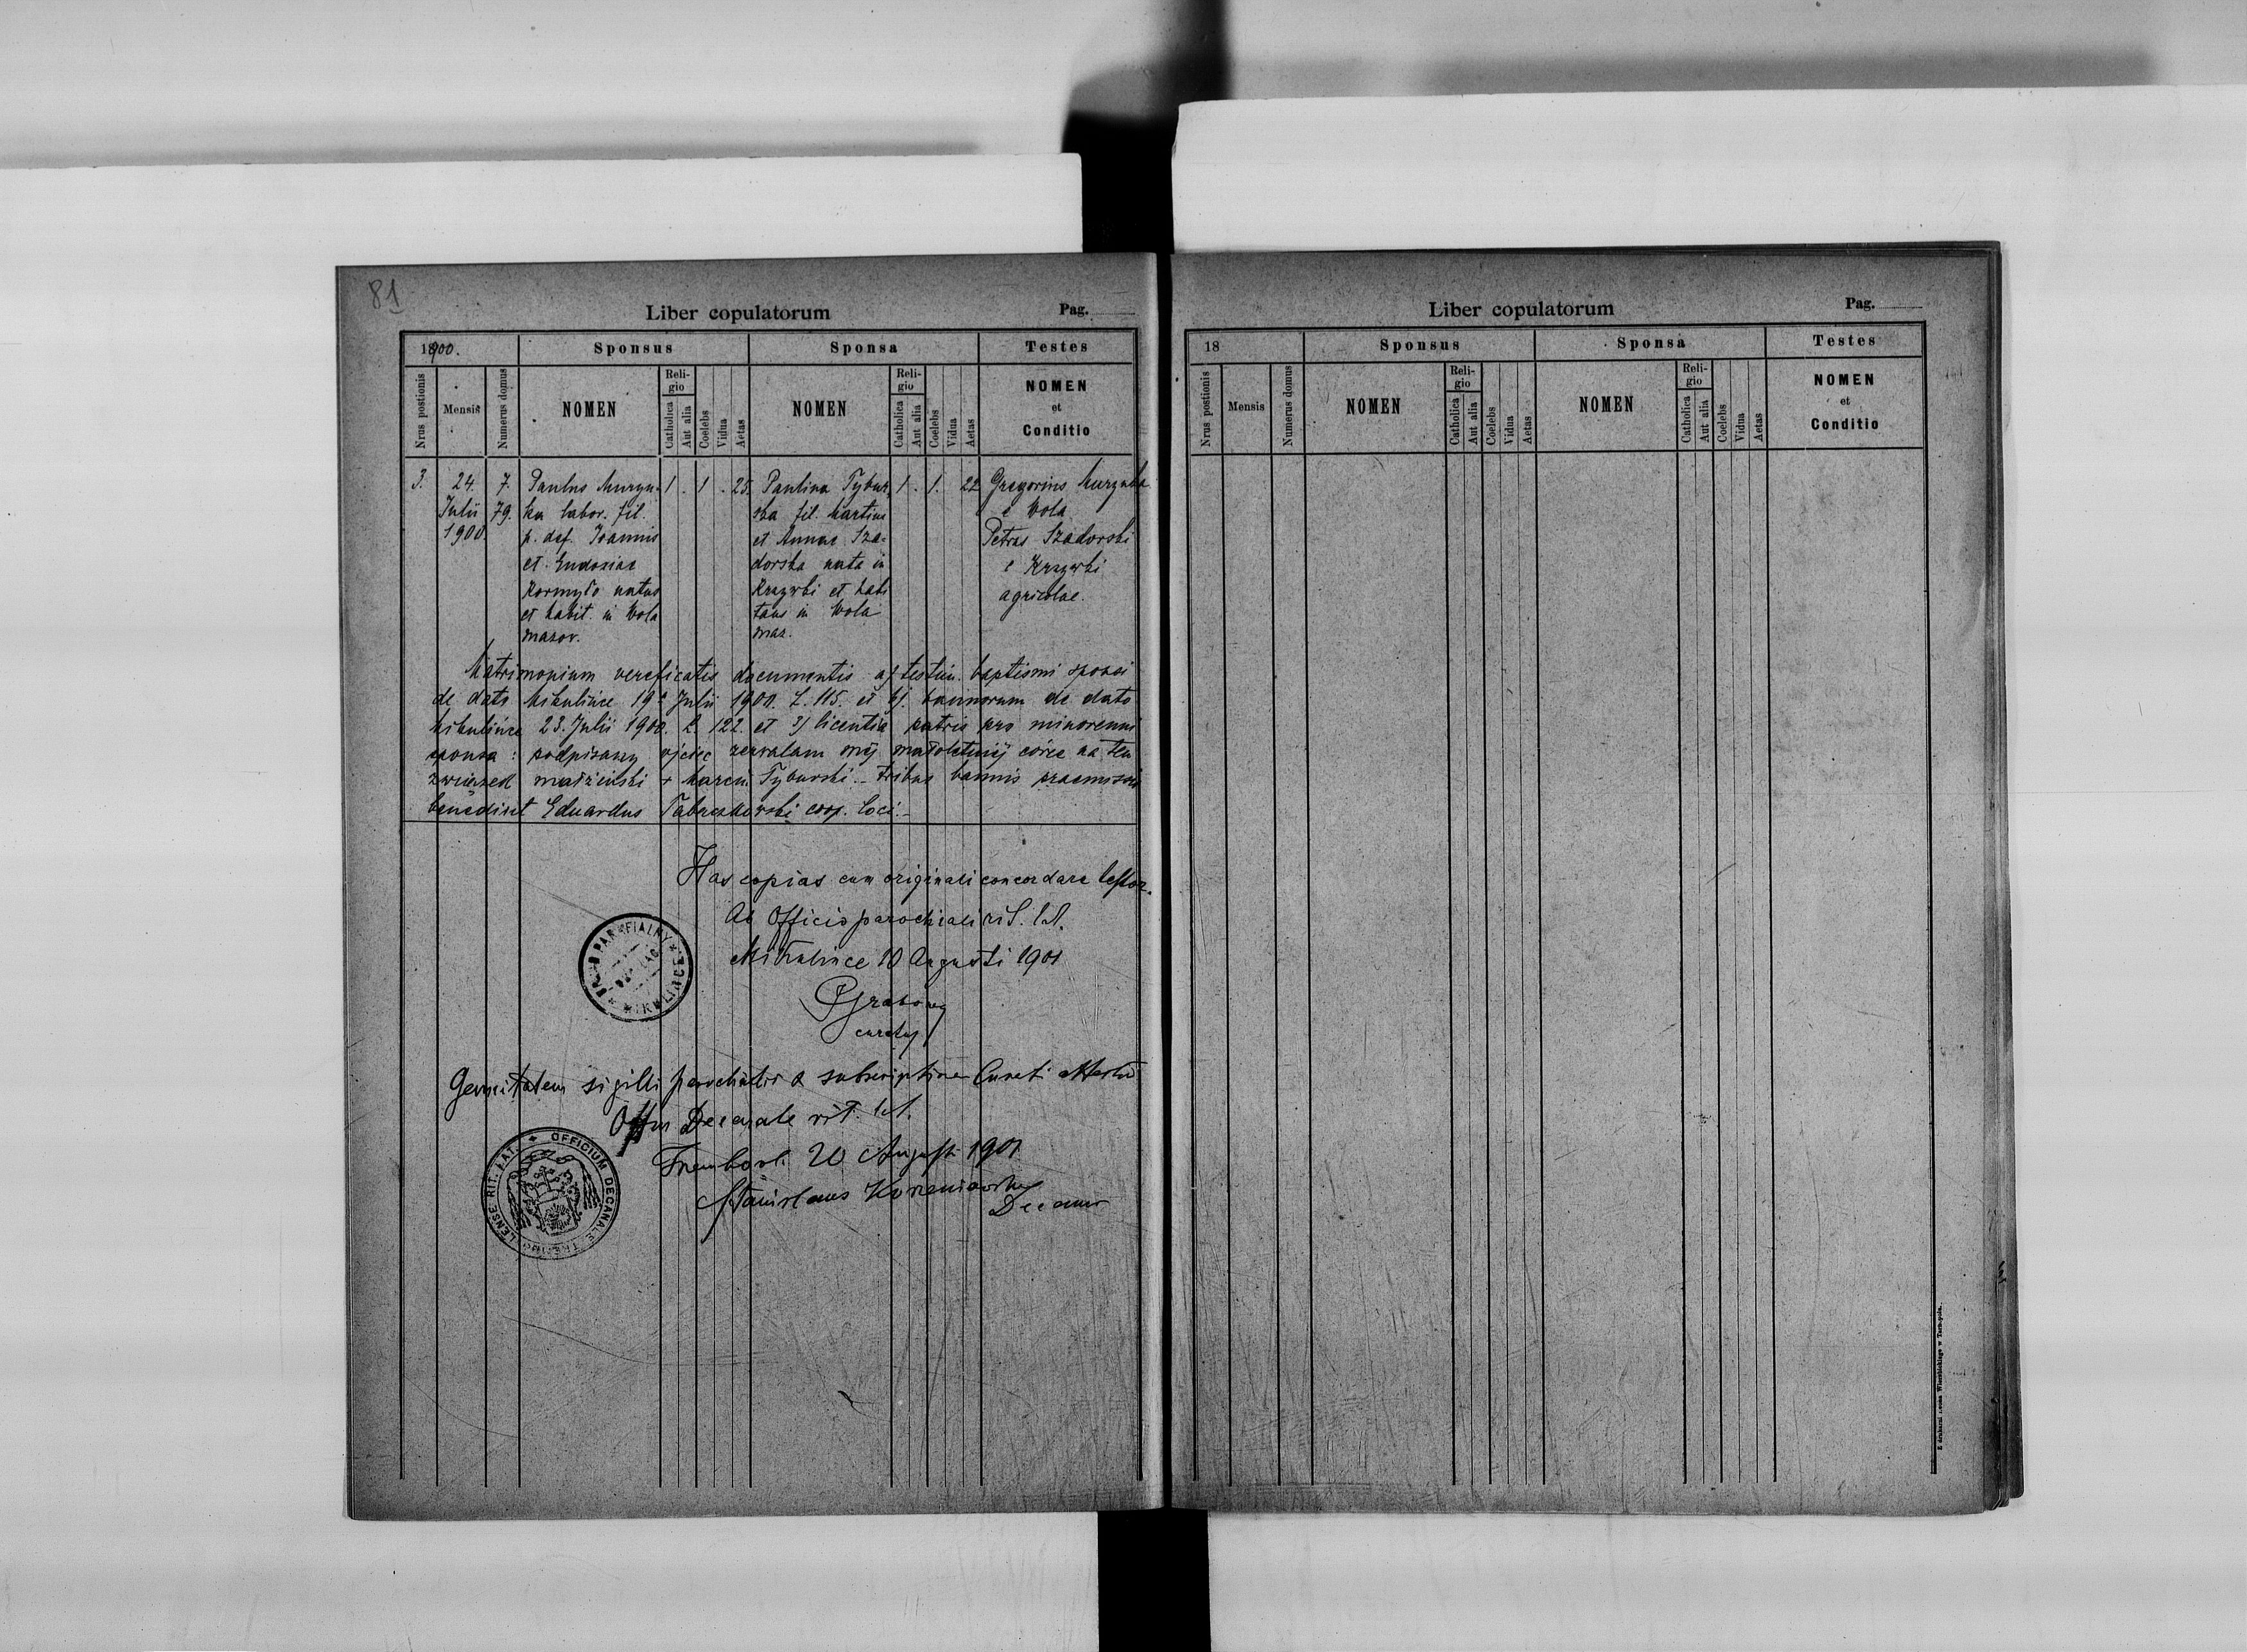 81
Liber copulatorum Pag.
1900. Sponsus Sponsa Testes
Nrus postionis Mensis Numerus domus NOMEN Religio Catholica Aut alia Coelebs Vidua Aetas NOMEN Religio Catholica Aut alia Coelebs Vidua Aetas NOMEN et Conditio
3. 24. 7. Paulus Muryn- 1 . 1 . 25. Paulina Tybur- 1 . 1. 22 Gregorius Murynka
Julii 79. ka labor. fil. ska fil. Martini e Wola
1900. p. def. Joannis et Annae Sza- Petrus Szadorski
et Eudosiae dorska nata in e Krzywki
Kormyło natus Krzywki et habi agricolae.
et habit. in Wola tans in Wola
mazov. maz.
Matrimonium verificatis documentis a/ testim. baptismi sponsi
de dato Mikulińce 19. Julii 1900. L. 115. et b/. bannorum de dato
Mikulińce 23. Julii 1900. L. 122. et 3/ licentia patris pro minorenni
sponsa : podpisany ojciec zezwalam mej małoletniej córce na ten
związek małżeński + Marcin Tyburski. - tribus bannis praemissis
benedixit Eduardus Tabaczkowski coop. loci. -
Has copias cum originali concordare testor.
Ab Officio parochiali rit. lat.
Mikulińce 10 Augusti 1901
Genuitatem sigilli parochialis & subscriptione Curati attestor
Offm Decanale rit. lat.
Trembowli 20 Augusti 1901
Stanislaus Korzeniowski
Decanus
OFFICIUM DECANALE RIT. LAT.
Liber copulatorum Pag.
18 Sponsus Sponsa Testes
Nrus postionis Mensis Numerus domus NOMEN Religio Catholica Aut alia Coelebs Vidua Aetas NOMEN Religio Catholica Aut alia Coelebs Vidua Aetas NOMEN et Conditio